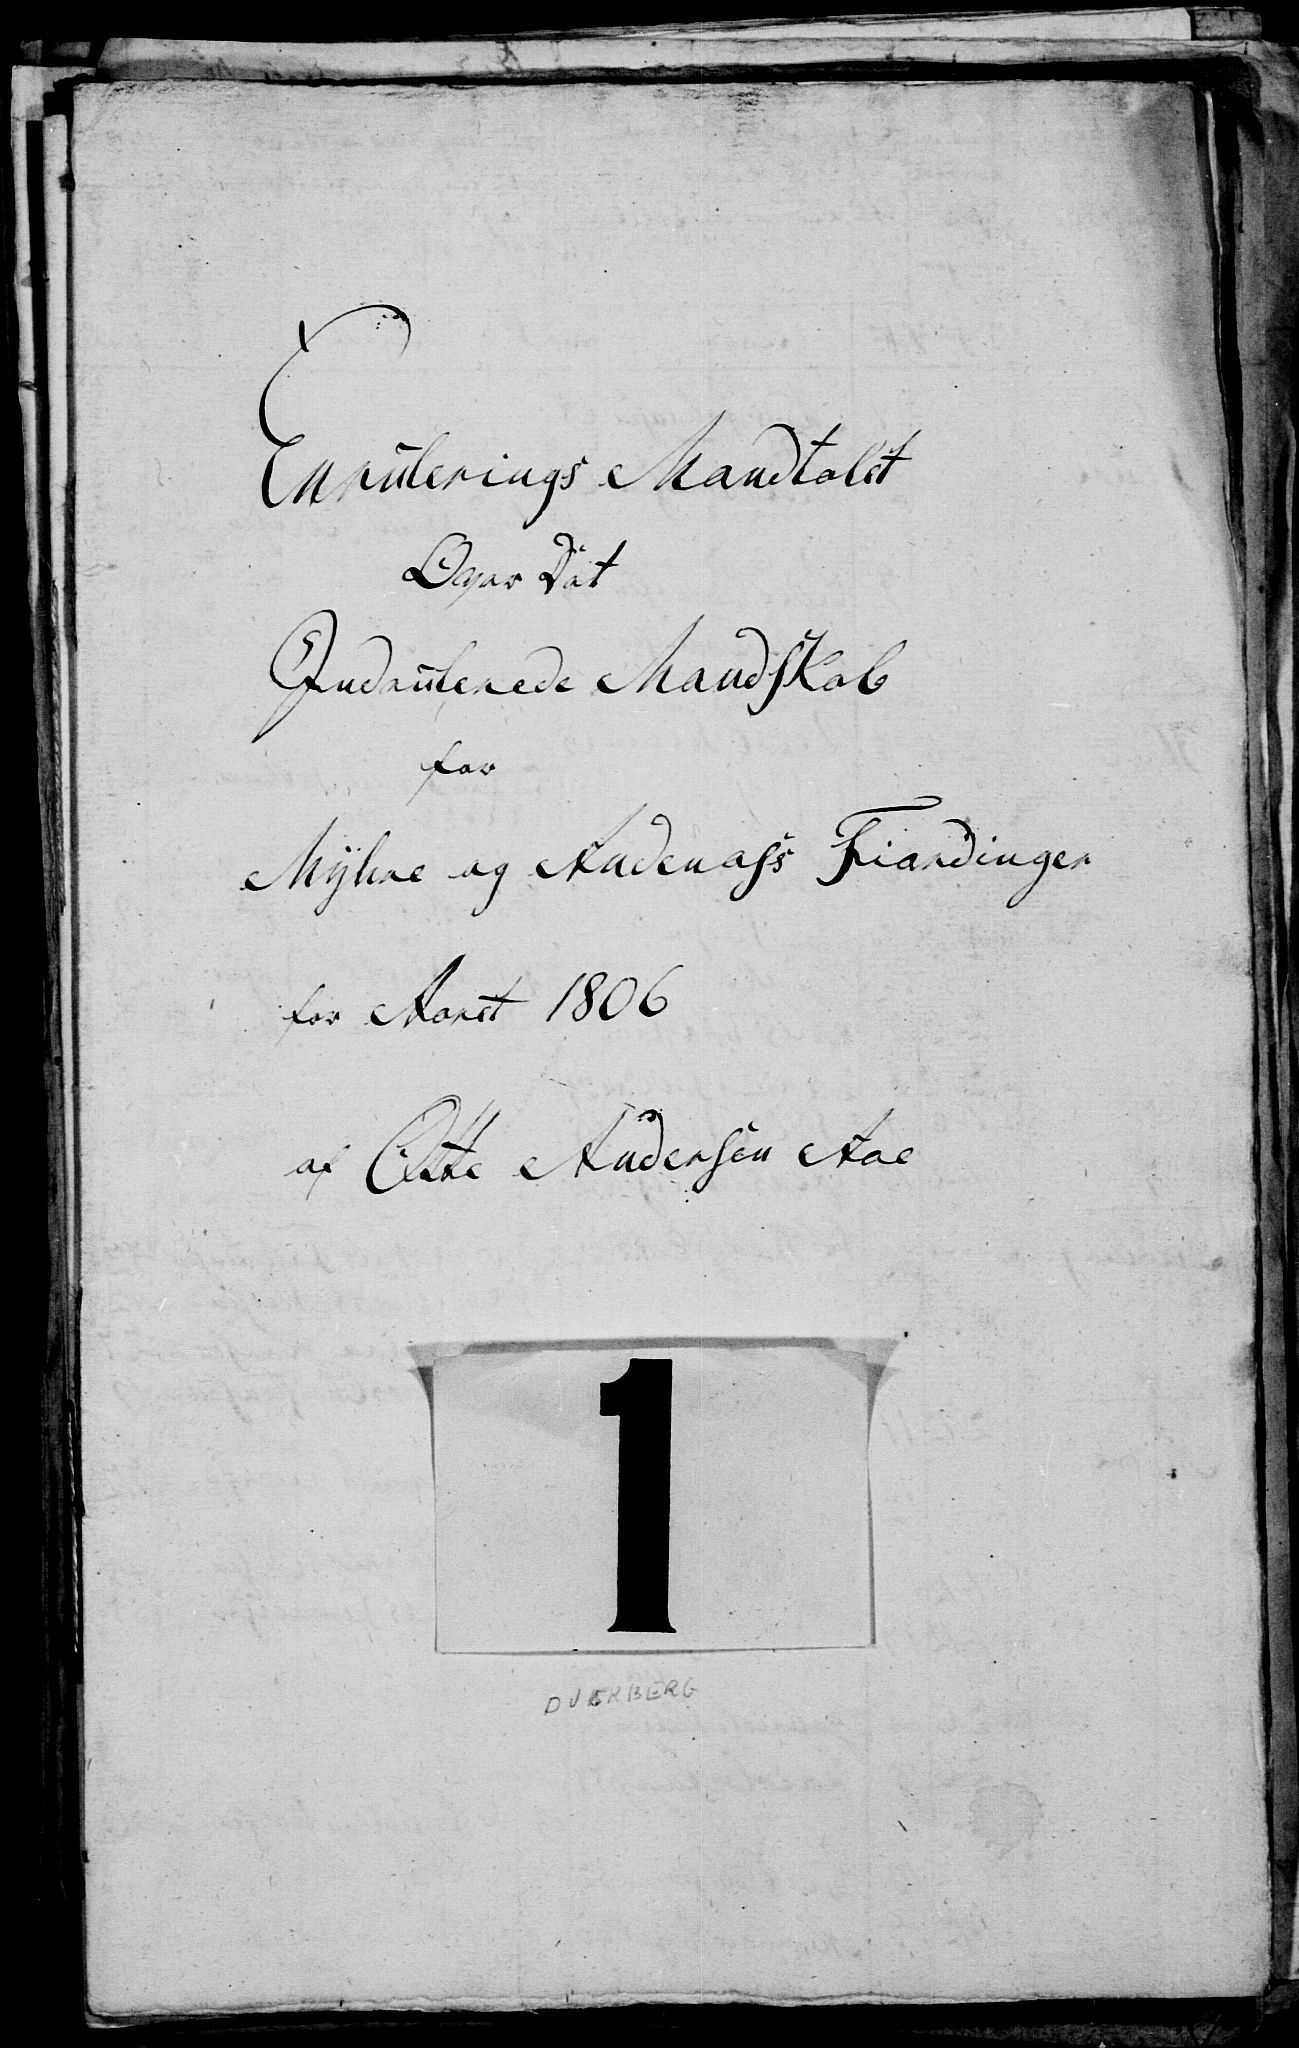 Enrulerings Mandtalet
Over Dät
Indrulerede Mandskab
for
Myhre og Andenass Fiardinger
for Aaret 1806
af Otte Andersen Aae
1
DVERBERG